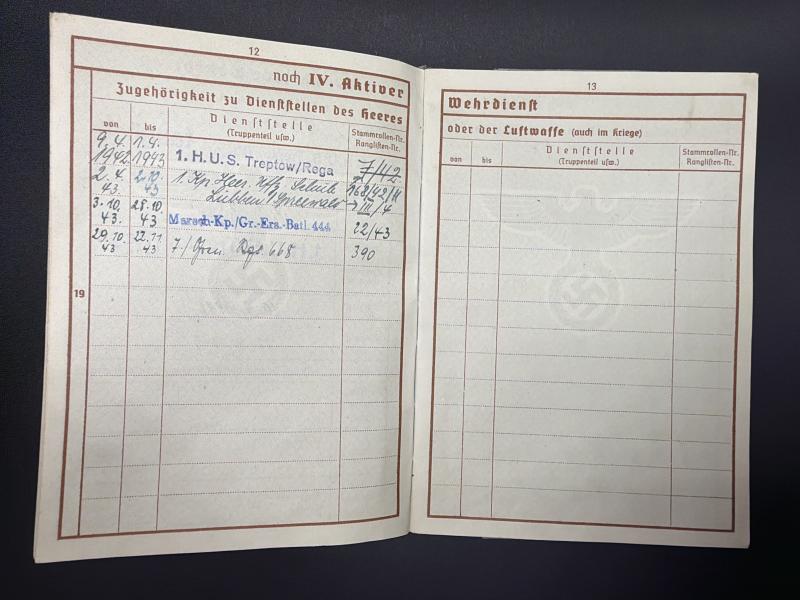 12
noch IV. Aktiver
Zugehörigkeit zu Dienststellen des Heeres
von
bis
Dienststelle
(Truppenteil usw.)
Stammrollen-Nr.
Ranglisten-Nr.
9.4. 1.4.
1942 1943
1. H.U.S. Treptow/Rega
7/42
2.4. 2.10.
43. 43
1. Kp. Heer. Uffz. Schule
Lübben/Spreewald
268/42/II
→ III/4
3.10. 28.10.
43. 43
Marsch-Kp./Gr.-Ers.-Batl. 444
22/43
29.10. 22.11
43 43
7./Gren. Rgt. 668
390
19
13
Wehrdienst
oder der Luftwaffe (auch im Kriege)
von
bis
Dienststelle
(Truppenteil usw.)
Stammrollen-Nr.
Ranglisten-Nr.